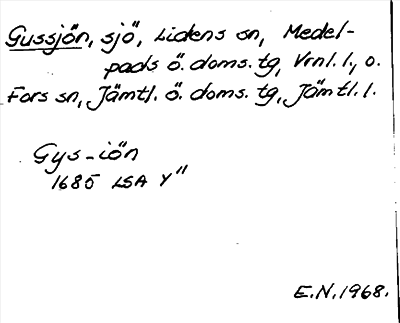 Gussjön, sjö, Lidens sn, Medel-
pads ö. doms. tg, Vrnl. l., o.
Fors sn, Jämtl. ö. doms. tg, Jämtl. l.
Gys-iön
1685 LSA Y"
E.N. 1968.